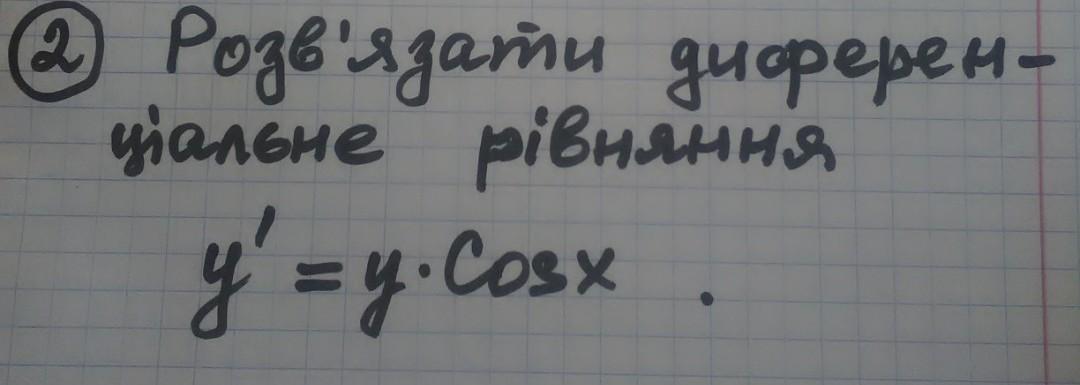 ② Розв'язати диферен-
ціальне рівняння
y' = y · Cosx .